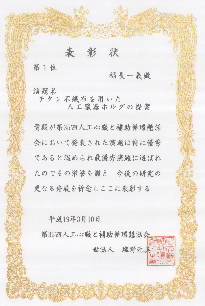 表彰状
第1位
福長一義殿
演題名
チタン不織布を用いた
人工臓器ホルダの提案
貴殿が第35回人工心臓と補助循環懇話
会において発表された演題は特に優秀
であると認められ最優秀演題に選ばれ
たのでその栄誉を讃え 今後の研究の
更なる発展を祈念しここに表彰する
平成19年3月10日
第35回人工心臓と補助循環懇話会
世話人